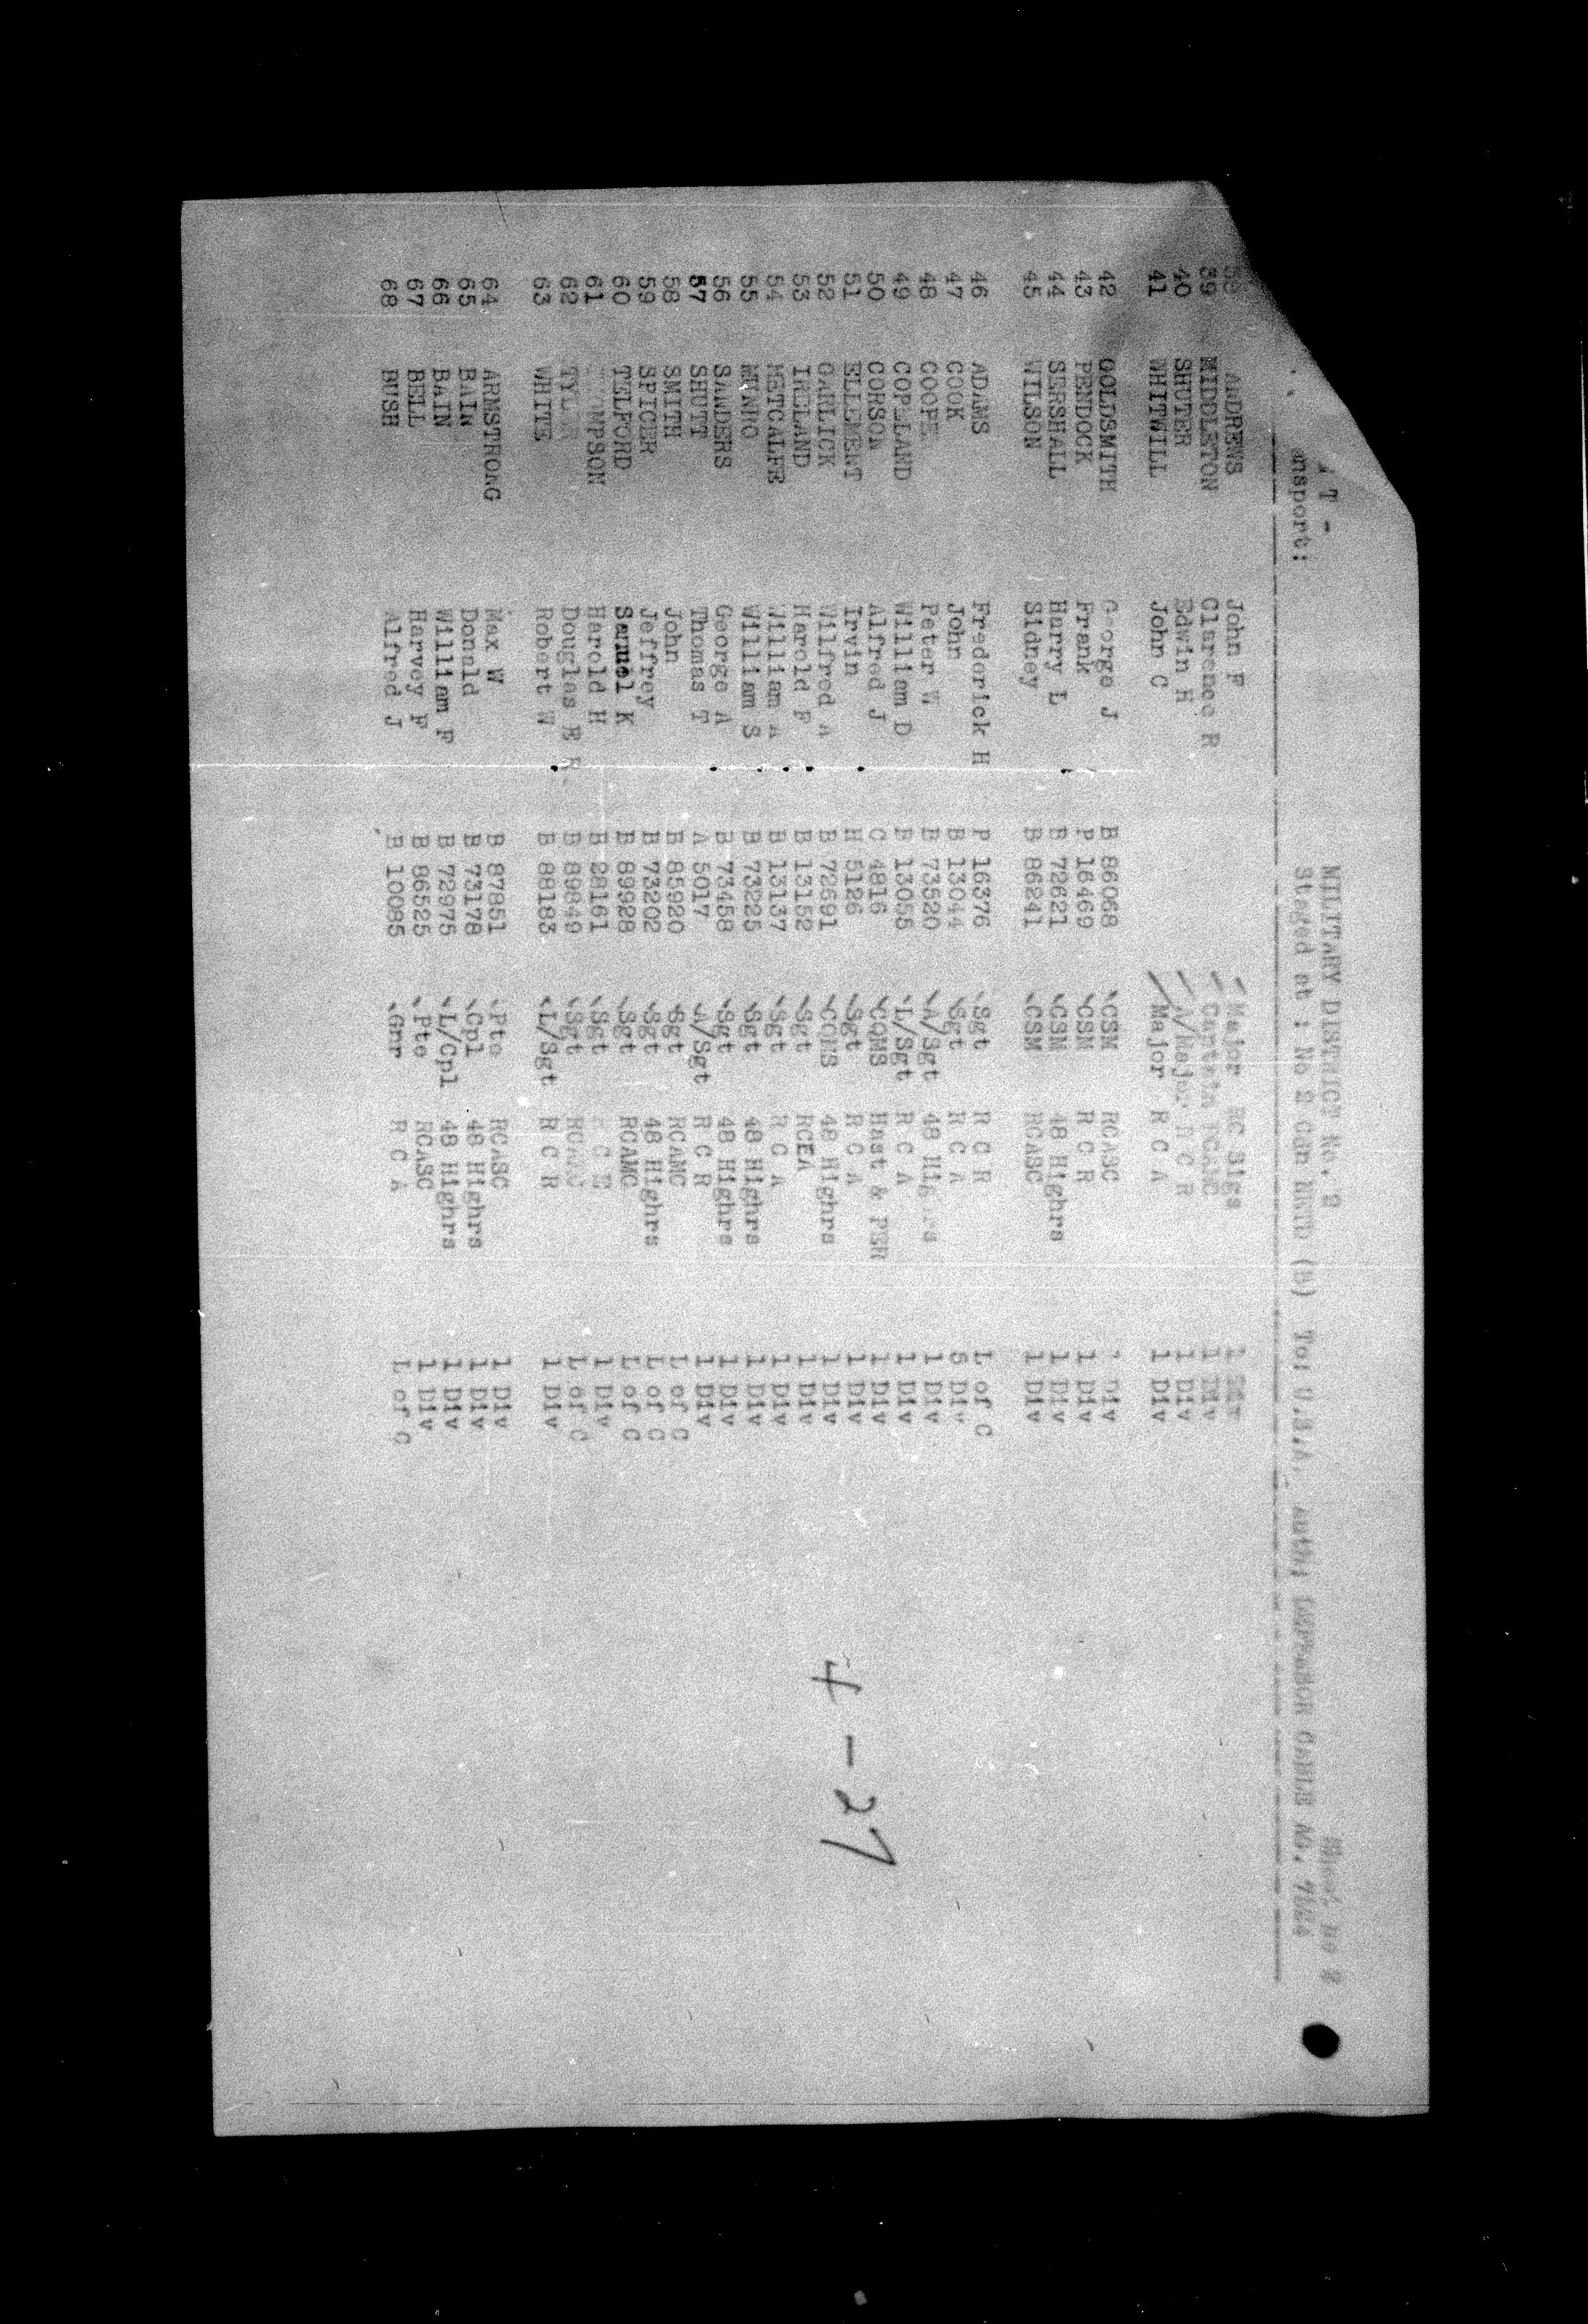 T -
MILITARY DISTRICT No. 2
nsport: Staged at : No 2 Can (B) To: U.K.
38 ANDREWS John F Major RC Sigs 1 Div
39 MIDDLETON Clarence R Captain RCASC 1 Div
40 SHUTER Edwin H A/Major R C R 1 Div
41 WHITWILL John C Major R C A 1 Div
42 GOLDSMITH George J B 86068 CSM RCASC 1 Div
43 PENDOCK Frank P 16469 CSM R C R 1 Div
44 SERSHALL Harry L B 72621 CSM 48 Highrs 1 Div
45 WILSON Sidney B 86241 CSM RCASC 1 Div
46 ADAMS Frederick H P 16376 Sgt R C R L of C
47 COOK John B 13044 Sgt R C A 5 Div
48 COOPE Peter W B 73520 A/Sgt 48 Highrs 1 Div
49 COPELAND William D B 13055 L/Sgt R C A 1 Div
50 CORSON Alfred J C 4816 CQMS Hast & PER 1 Div
51 ELLEMENT Irvin H 5126 Sgt R C A 1 Div
52 GARLICK Wilfred A B 72691 CQMS 48 Highrs 1 Div
53 IRELAND Harold F B 13152 Sgt RCEA 1 Div
54 METCALFE William A B 13137 Sgt R C A 1 Div
55 MUNRO William S B 73225 Sgt 48 Highrs 1 Div
56 SANDERS George A B 73458 Sgt 48 Highrs 1 Div
57 SHUTT Thomas T A 5017 A/Sgt R C R 1 Div
58 SMITH John B 85920 Sgt RCAMC L of C
59 SPICER Jeffrey B 73202 Sgt 48 Highrs L of C
60 TELFORD Samuel K B 89928 Sgt RCAMC L of C
61 THOMPSON Harold H B 28161 Sgt R C E 1 Div
62 TYLER Douglas E R B 89849 Sgt L of C
63 WHITE Robert W B 88183 L/Sgt R C R 1 Div
64 ARMSTRONG Max W B 87851 Pte RCASC 1 Div
65 BAIN Donald B 73178 Cpl 48 Highrs 1 Div
66 BAIN William F B 72975 L/Cpl 48 Highrs 1 Div
67 BELL Harvey F B 86525 Pte RCASC 1 Div
68 BUSH Alfred J B 10085 Gnr R C A L of C
+ - 27